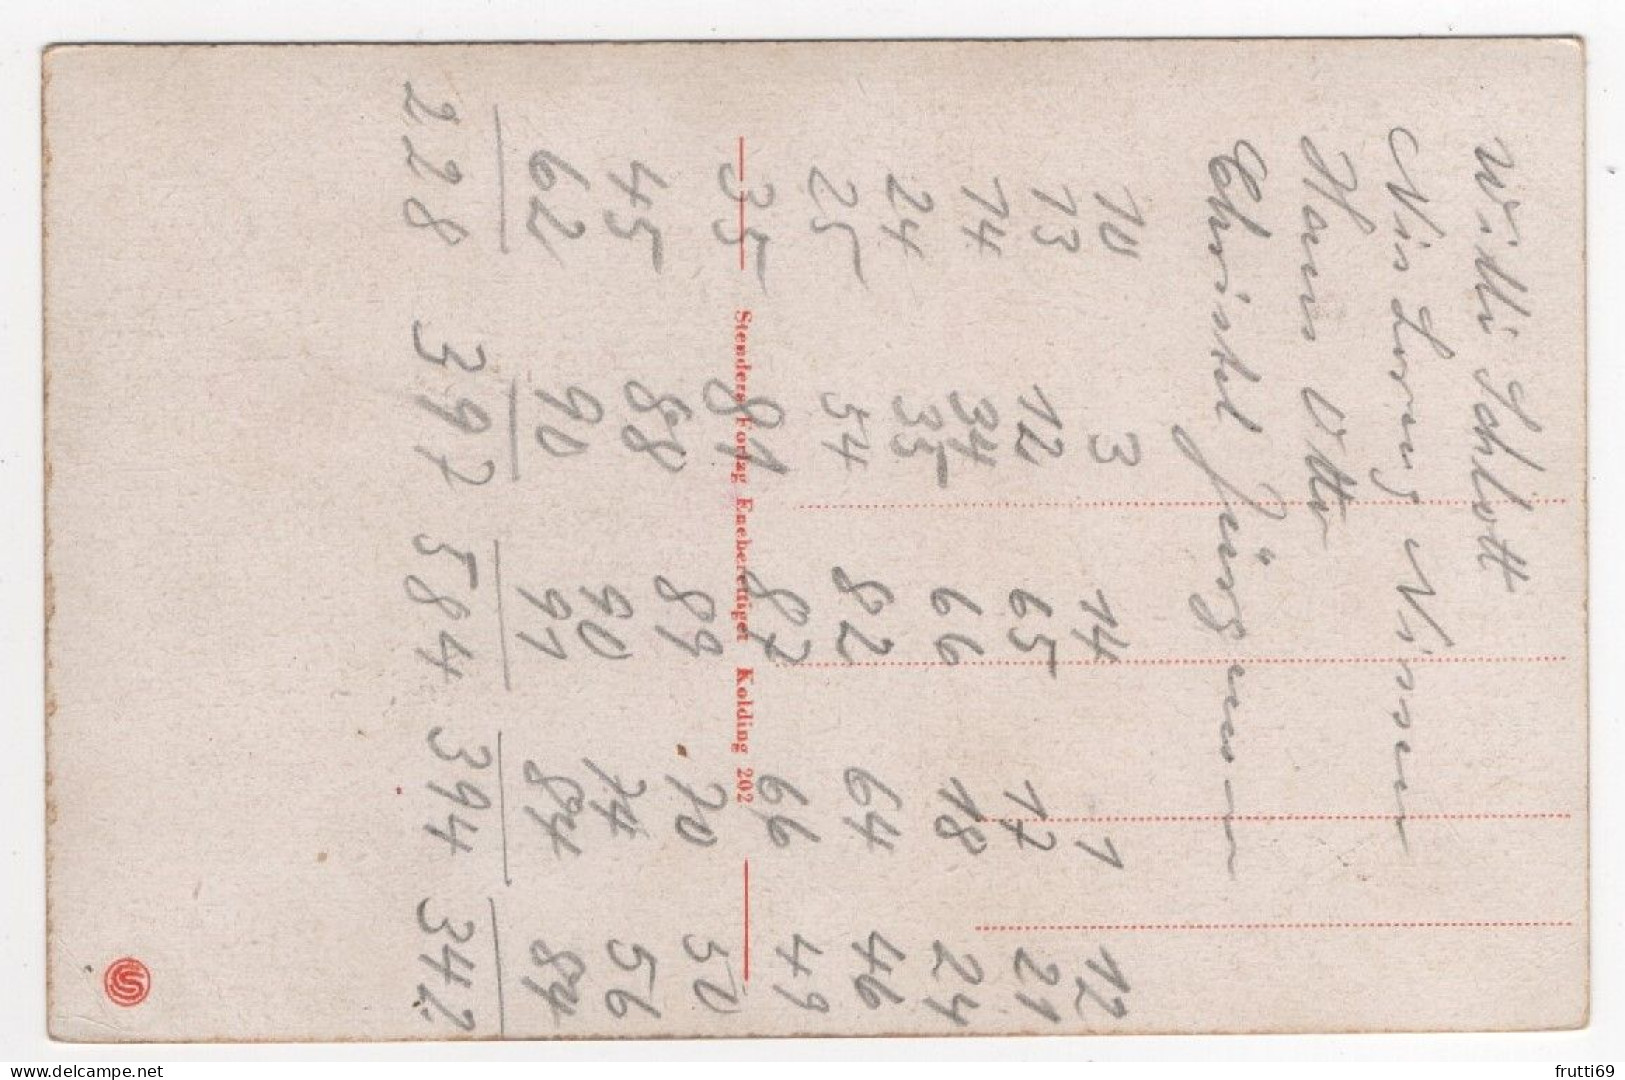 Willi Schlott
Nis Lorenz Nissen
Hans Otto
Christel Jürgensen
10 3 14 1 12
13 12 65 17 21
14 34 66 18 24
24 35 82 64 46
25 54 87 66 49
35 81 89 70 50
45 88 90 74 56
62 90 91 84 84
228 397 584 394 342
Stenders Forlag Eneberettiget Kolding 202
S
delcampe.net
frutti69